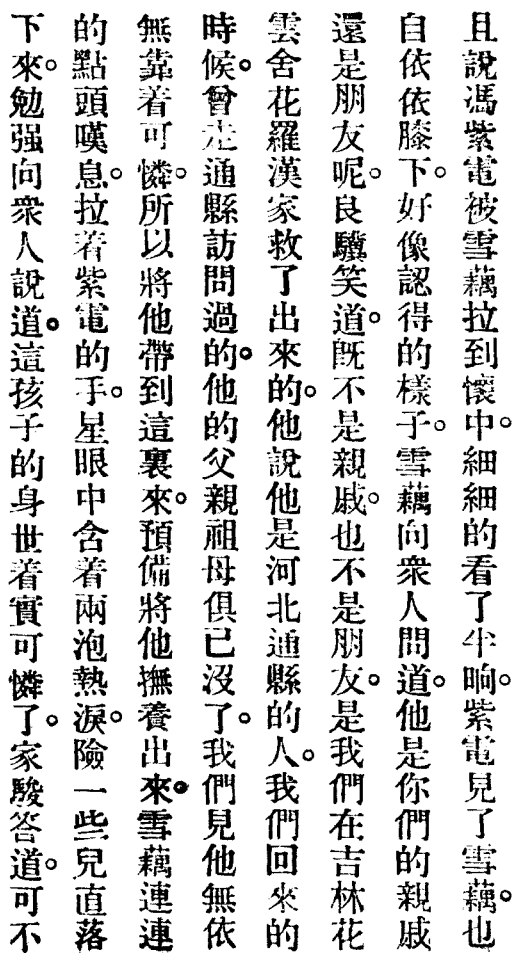 且說馮紫電被雪藕拉到懷中。細細的看了半晌。紫電見了雪藕。也
自依依膝下。好像認得的樣子。雪藕向衆人問道。他是你們的親戚
還是朋友呢。良驥笑道。旣不是親戚。也不是朋友。是我們在吉林花
雲舍花羅漢家救了出來的。他說他是河北通縣的人。我們回來的
時候。曾走通縣訪問過的。他的父親祖母俱已沒了。我們見他無依
無靠着可憐。所以將他帶到這裏來。預備將他撫養出來。雪藕連連
的點頭嘆息。拉着紫電的手。星眼中含着兩泡熱淚。險一些兒直落
下來。勉强向衆人說道。這孩子的身世着實可憐了。家駿答道。可不